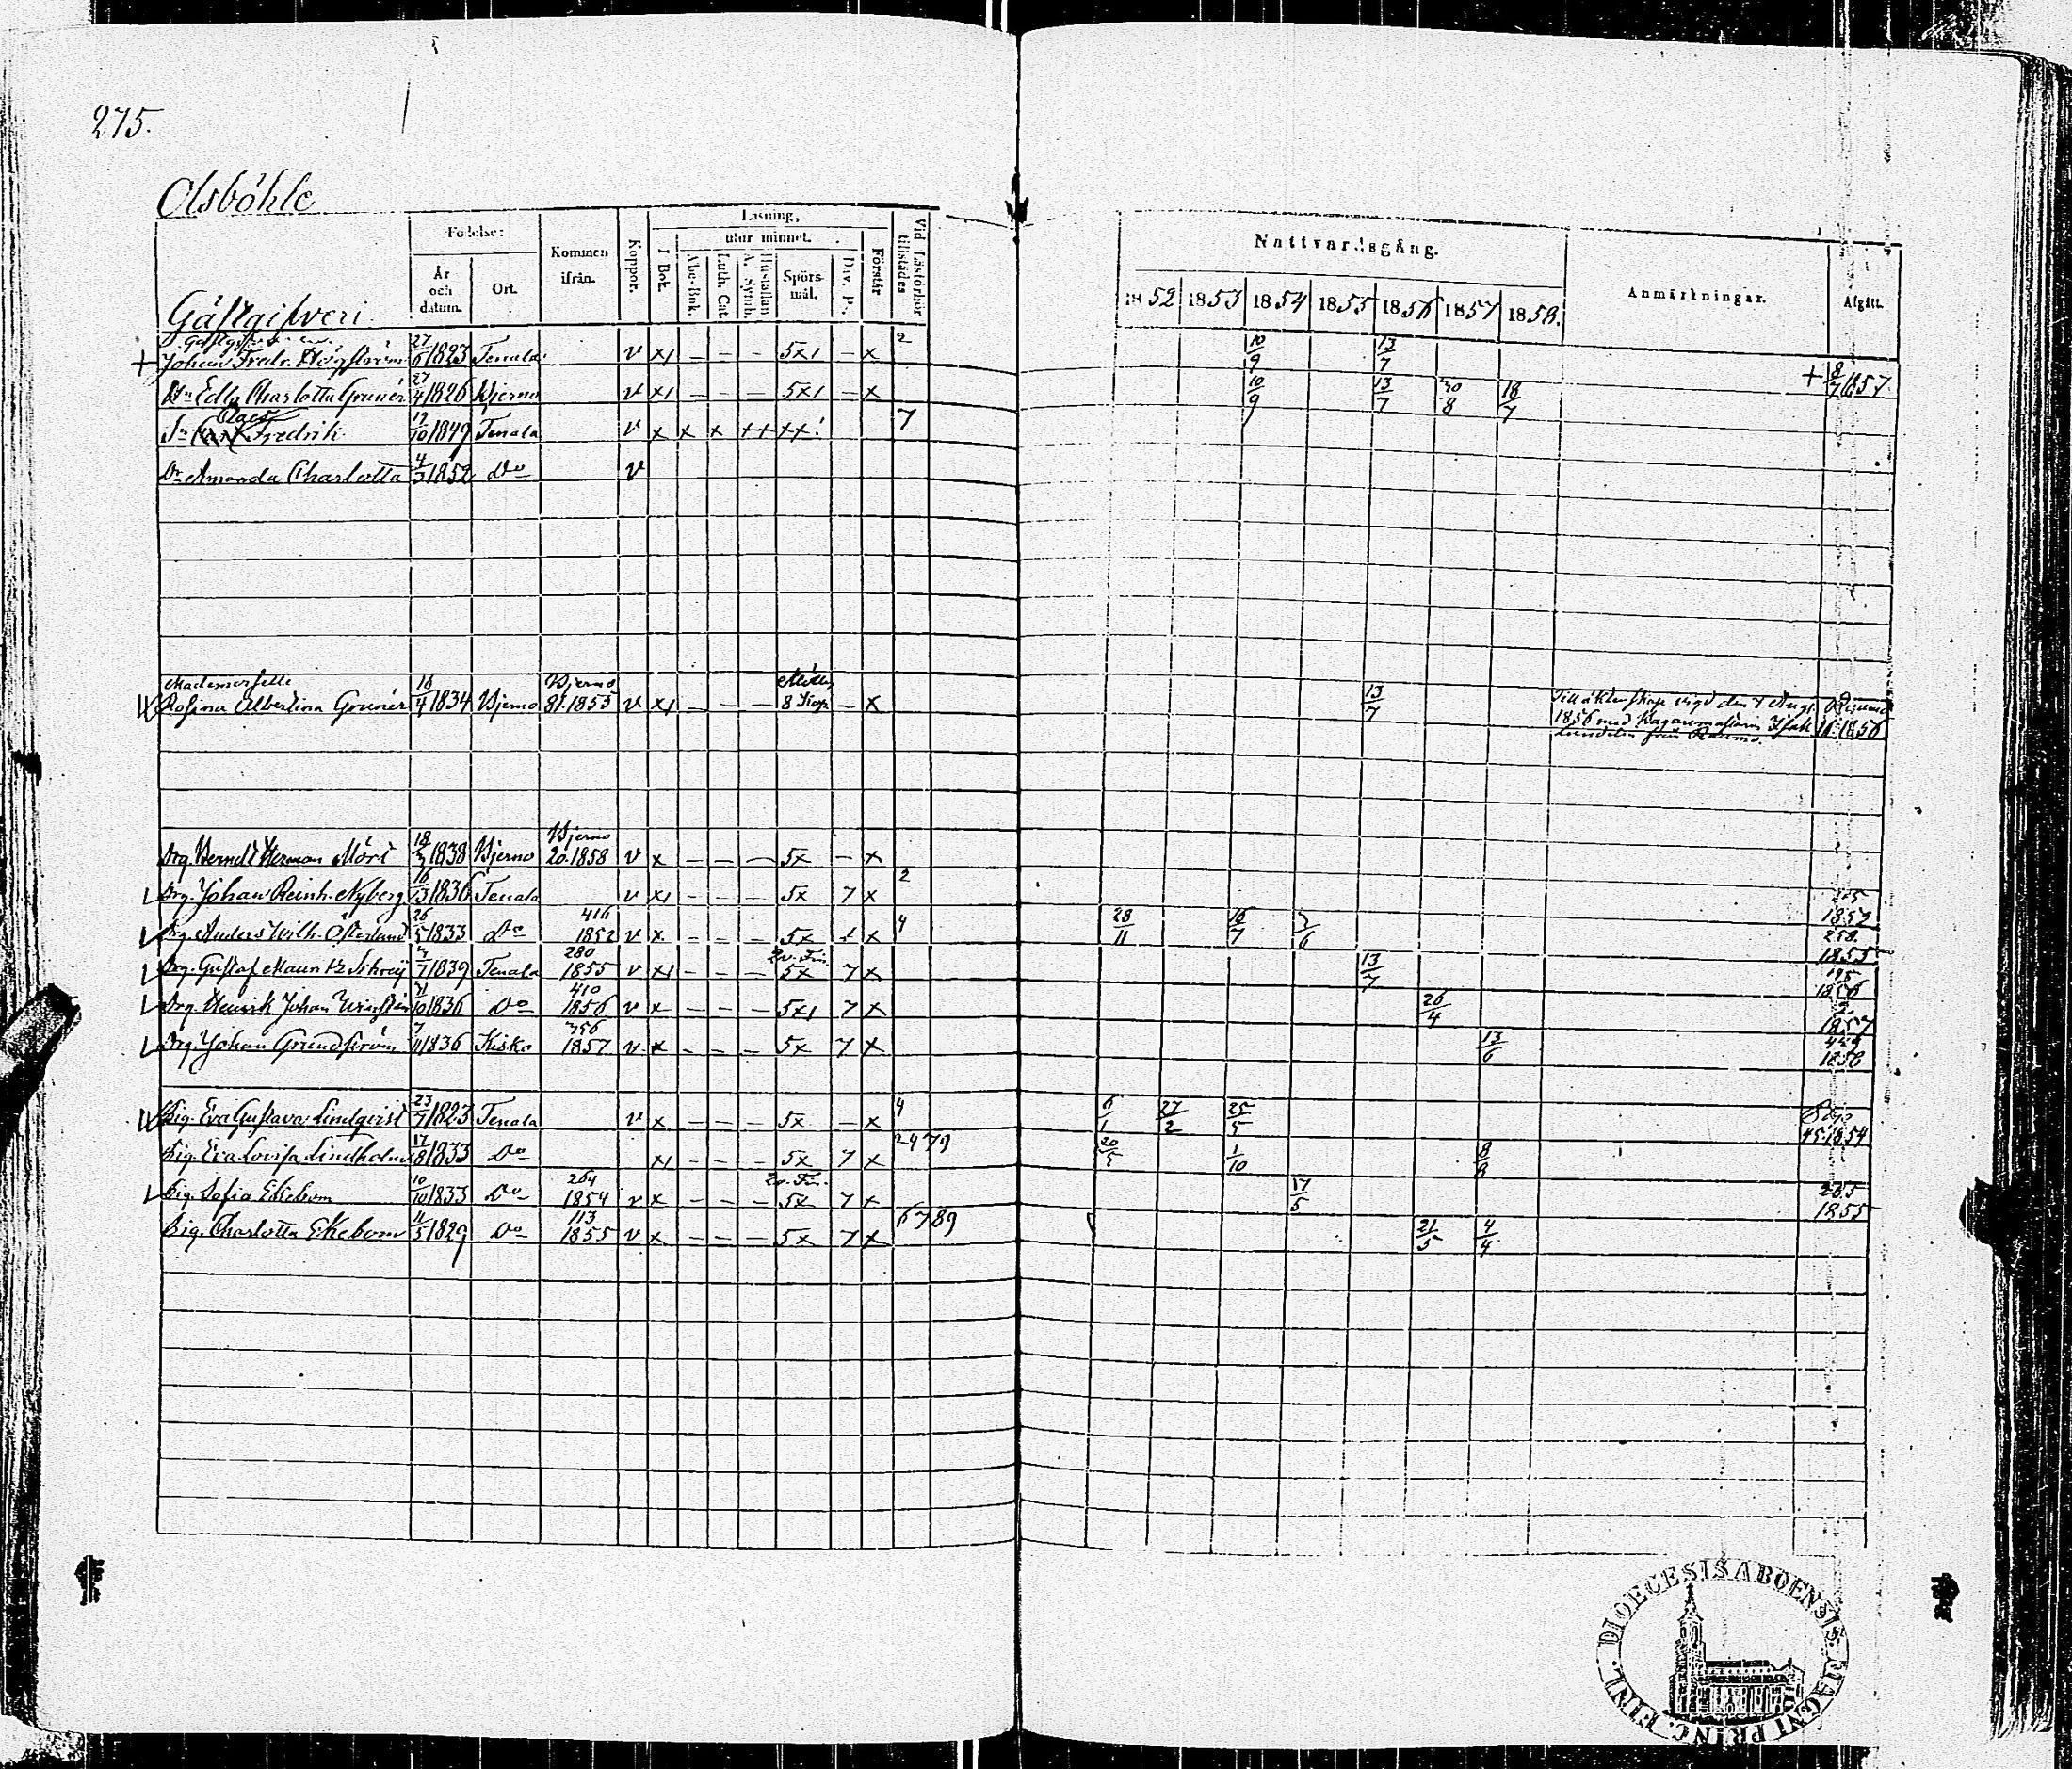 275.
Olsböhle
Gästgifveri
Födelse:
År och datum.
Ort.
Kommen ifrån.
Koppor.
Läsning,
utur minnet.
I Bok.
Abc-Bok.
Luth. Cat.
Hustaflan A. Symb.
Spörsmål.
Dav. Ps.
Förstår
Vid Läsförhör tillstädes
Nattvardsgång.
1852 1853 1854 1855 1856 1857 1858.
Anmärkningar.
Afgått.
+ Johan Fredr. Högström 27/6 1823 Tenala v x1 – – – 5x1 – x 2 10/9 13/7 + 8/7 1857.
Hu Edla Charlotta Grunér 27/4 1826 Bjerno v x1 – – – 5x1 – x 10/9 13/7 30/8 18/7
Claes
Sn Fredrik 19/10 1849 Tenala v x x x xx xx! 7
Dr Amanda Charlotta 4/3 1852 Do v
Mademoiselle
Rosina Albertina Grunér 16/4 1834 Bjerno Bjerno 81.1855 v x1 – – – 8 – x 13/7
Till äktenskap vigd den 7 Aug.
1856 med Bagaremästarn Isak
från Raumo. 1856
Drg. Berndt Herman Mört 18/3 1838 Bjerno Bjerno 20.1858 v x – – – 5x – x
Drg. Johan Reinh. Nyberg 1836 Tenala v x1 – – – 5x 7 x 2 1852
Drg. Anders Wilh. Österlund 26/5 1833 Do 416 1852 v x – – – 5x x 4 28/11 16/7 3/6 258. 1855
Drg. Gustaf Maur. 1839 Tenala 280 1855 v x1 – – – 5x 7 x 13/7 195 1856
Drg. Henrik Johan 1836 Do 410 1856 v x – – – 5x1 7 x 26/4 2 1857
Drg. Johan Grundström 7/11 1836 Kisko 356 1857 v x – – – 5x 7 x 13/6 1858
Pig. Eva Gustava Lindqvist 23/7 1823 Tenala v x 5x – x 4 6/1 27/2 25/5 45.1854
Pig. Eva Lovisa Lindholm 17/8 1833 Do x1 – – – 5x 7 x 2479 20/5 1/10 8/8
Pig. Sofia Ekebom 10/10 1833 Do 264 1854 v x – – – 5x 7 x 17/5 265 1855
Pig. Charlotta Ekebom 11/5 1829 Do 113 1855 v x – – – 5x 7 x 6789 21/5 4/4
DIOECESIS ABOENSIS. MAGNI PRINC. FINL.